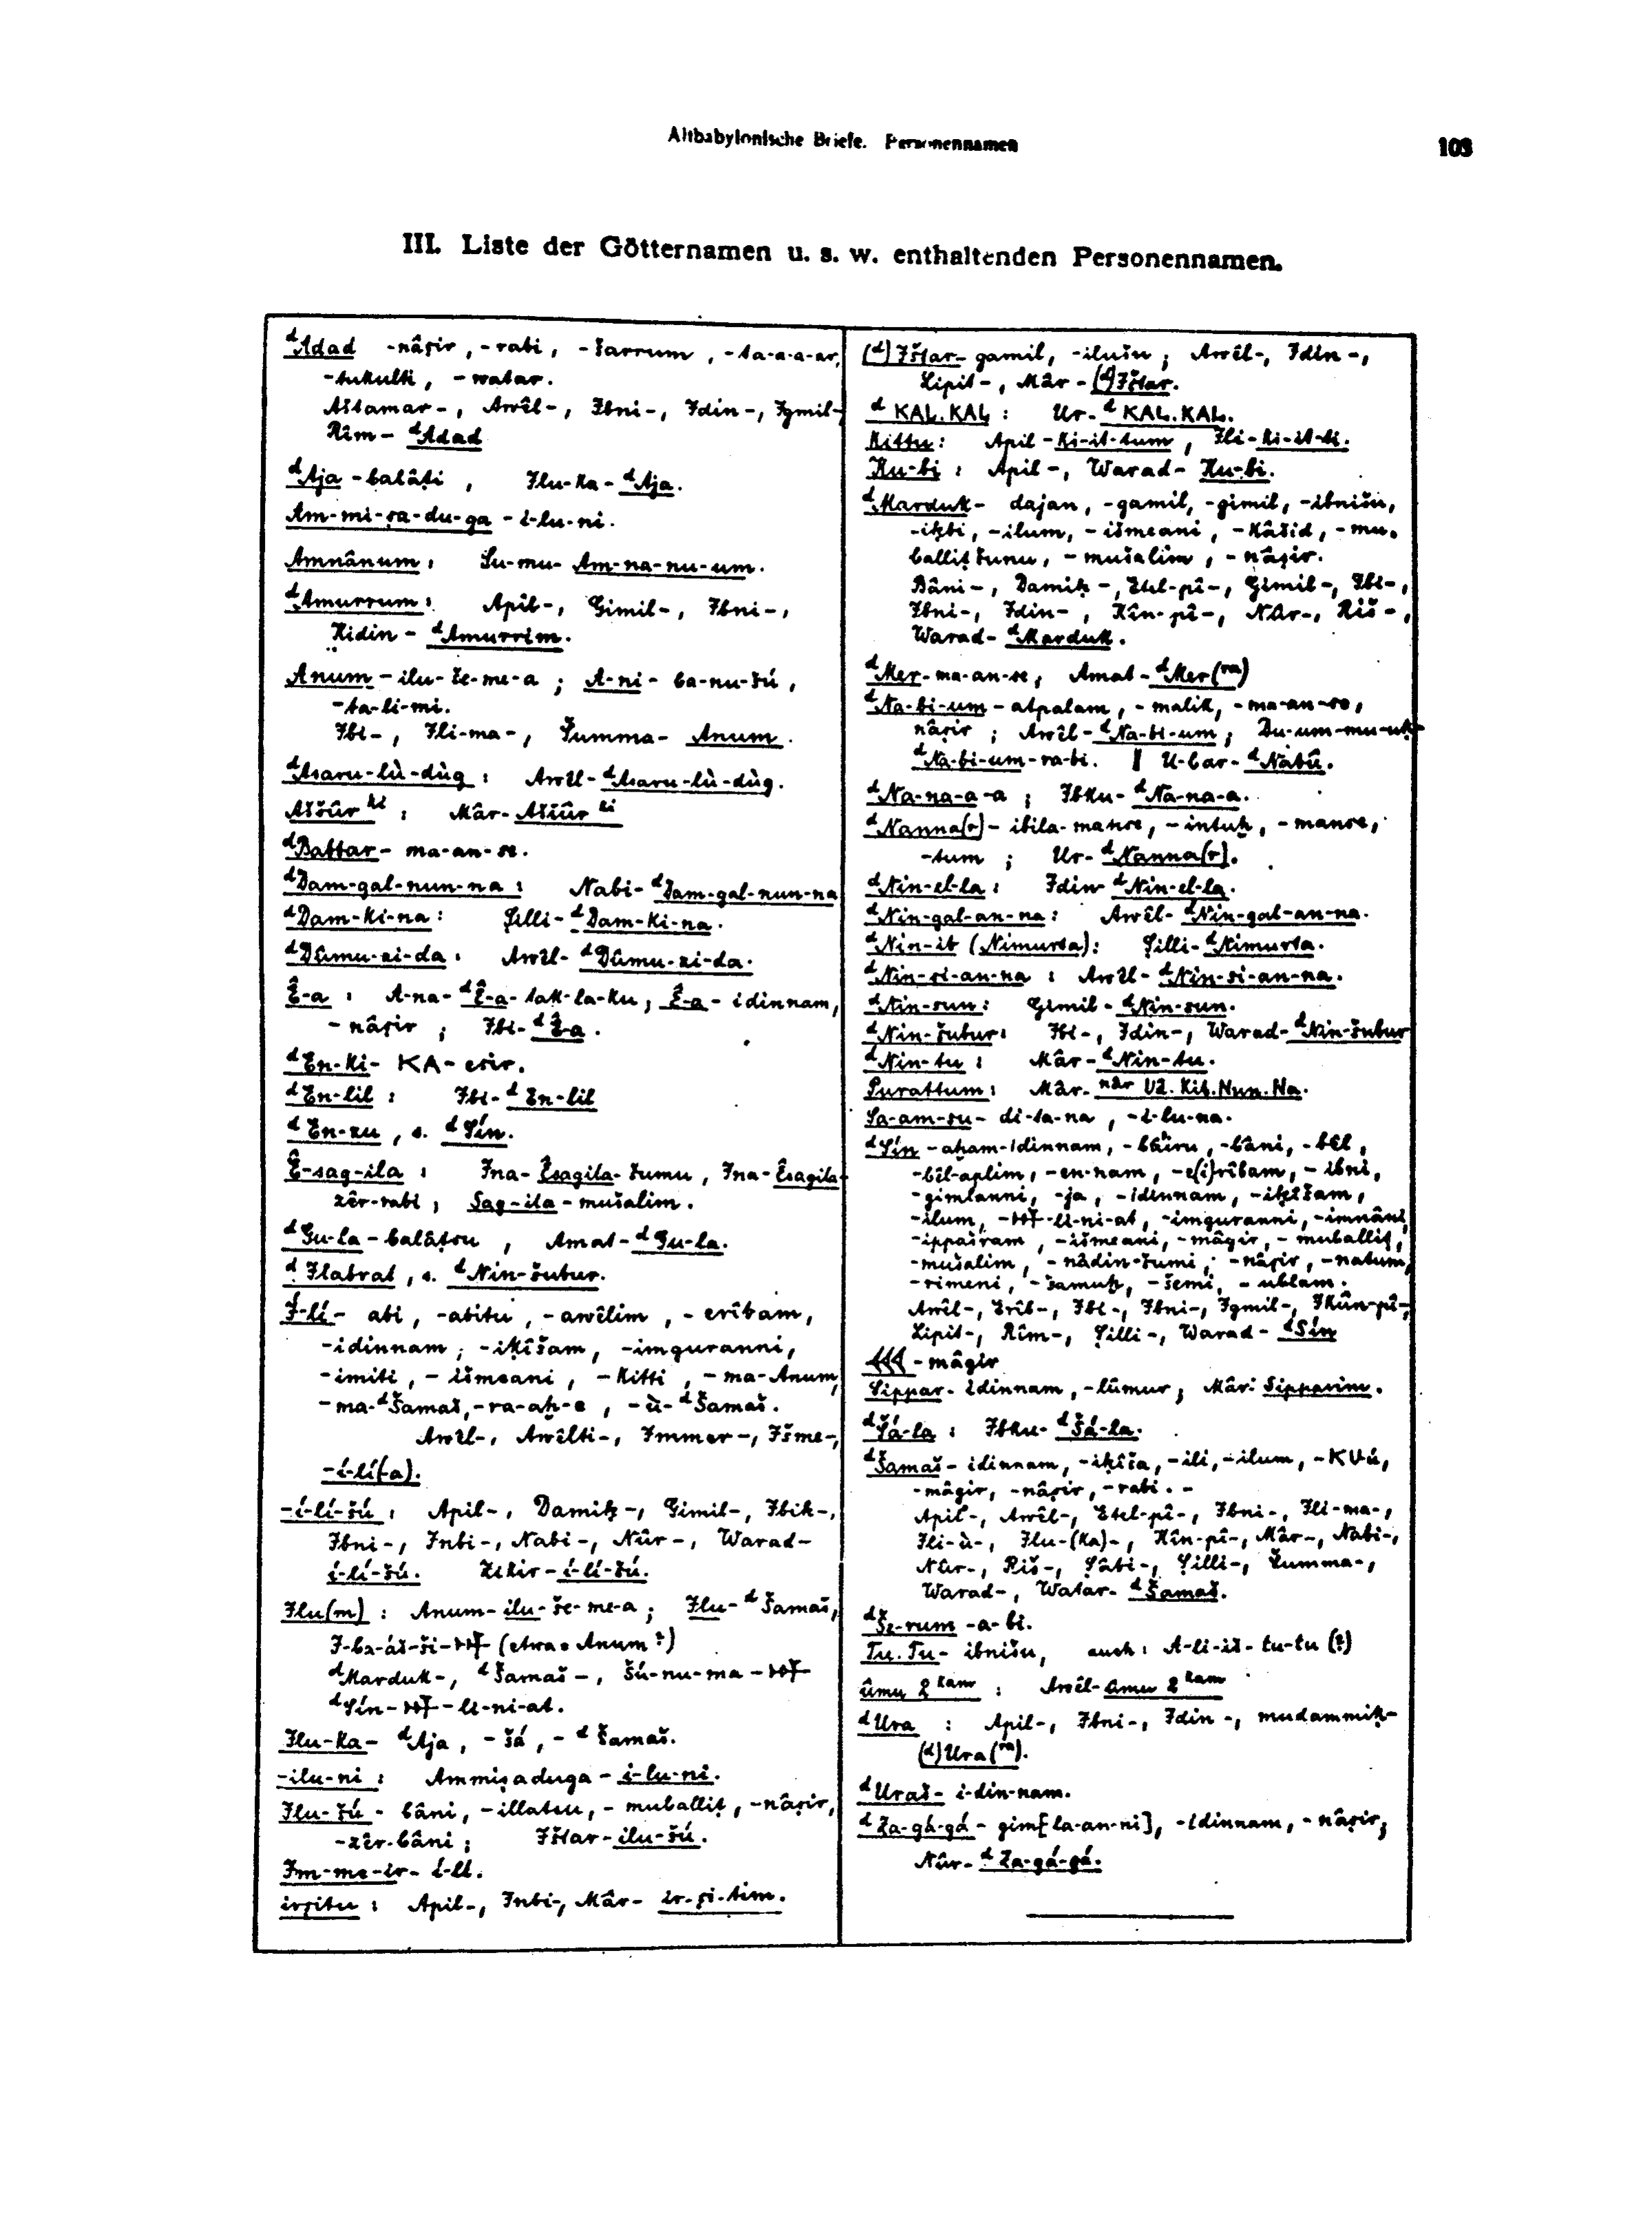 Altbabylonische Briefe. Personennamen
103
III. Liste der Götternamen u. s. w. enthaltenden Personennamen.
ᵈAdad -nâṣir, -rabi, -šarrum, -ta-a-a-ar,
-tukulti, -watar.
Aštamar-, Awêl-, Ibni-, Idin-, Igmil-
Rîm-ᵈAdad
ᵈAja-balâṭi, Ilu-ka-ᵈAja.
Am-mi-ṣa-du-ga-i-lu-ni.
Amnânum: Su-mu-Am-na-nu-um.
ᵈAmurrum: Apil-, Gimil-, Ibni-,
Kidin-ᵈAmurrim.
Anum-ilu-še-me-a; A-ni-ba-nu-šú,
-ta-li-mi.
Ibi-, Ili-ma-, Šumma-Anum.
ᵈAsaru-lù-dùg: Awîl-ᵈAsaru-lù-dùg.
Aššûr ᵏⁱ: Mâr-Aššûr ᵏⁱ
ᵈBabbar-ma-an-se.
ᵈDam-gal-nun-na: Nabi-ᵈDam-gal-nun-na
ᵈDam-ki-na: Ṣilli-ᵈDam-ki-na.
ᵈDûmu-zi-da: Awîl-ᵈDûmu-zi-da.
Ê-a: A-na-ᵈÊ-a-tak-la-ku; Ê-a-idinnam,
-nâṣir; Ibi-ᵈÊ-a.
ᵈEn-ki-KA-esir.
ᵈEn-lil: Ibi-ᵈEn-lil
ᵈEn-zu, s. ᵈSín.
Ê-sag-ila: Ina-Êsagila-šumu, Ina-Êsagila-
zêr-rabi, Sag-ila-mušalim.
ᵈGu-la-balâṭsu, Amat-ᵈGu-la.
ᵈIlabrat, s. ᵈNin-šubur.
Í-lí-abi, -abišu, -awêlim, -erîbam,
-idinnam, -iḳîšam, -imguranni,
-imiti, -išmeani, -kitti, -ma-Anum,
-ma-ᵈŠamaš, -ra-aḫ-e, -ù-ᵈŠamaš.
Awîl-, Awêlti-, Immer-, Išme-,
-í-lí(-a).
-í-lí-šú: Apil-, Damiḳ-, Gimil-, Ibik-,
Ibni-, Inbi-, Nabi-, Nûr-, Warad-
í-lí-šú. Zikir-í-lí-šú.
Ilu(m): Anum-ilu-še-me-a; Ilu-ᵈŠamaš,
(etwa = Anum?)
ᵈMarduk-, ᵈŠamaš-, Šú-nu-ma-
ᵈSín- -li-ni-at.
Ilu-ka-ᵈAja, -šá, -ᵈŠamaš.
-ilu-ni: Ammiṣaduga-i-lu-ni.
Ilu-šú-bâni, -illatsu, -muballiṭ, -nâṣir,
-zêr-bâni; Ištar-ilu-šú.
Im-me-ir-í-lí.
irṣitu: Apil-, Inbi-, Mâr-ir-ṣi-tim.
(ᵈ)Ištar-gamil, -ilušu; Awêl-, Idin-,
Lipit-, Mâr-(ᵈ)Ištar.
ᵈKAL.KAL: Ur-ᵈKAL.KAL.
Kittu: Apil-ki-it-tum, Ili-ki-it-ti.
Ku-bi: Apil-, Warad-Ku-bi.
ᵈMarduk-dajan, -gamil, -gimil, -ibnišu,
-iḳbi, -ilum, -išmeani, -kâšid, -mu-
balliṭšunu, -mušalim, -nâṣir.
Bâni-, Damiḳ-, Etel-pî-, Gimil-, Ibi-,
Ibni-, Idin-, Kîn-pî-, Nûr-, Riš-,
Warad-ᵈMarduk.
ᵈMer-ma-an-se, Amat-ᵈMer(ʳᵃ)
ᵈNa-bi-um-atpalam, -malik, -ma-an-se,
nâṣir; Awîl-ᵈNa-bi-um; Du-um-mu-uḳ-
ᵈNa-bi-um-ra-bi. ‖ U-bar-ᵈNabû.
ᵈNa-na-a-a; Ibku-ᵈNa-na-a.
ᵈNanna(r)-ibila-manse, -intuḫ, -manse,
-tum; Ur-ᵈNanna(r).
ᵈNin-el-la: Idin-ᵈNin-el-la.
ᵈNin-gal-an-na: Awêl-ᵈNin-gal-an-na.
ᵈNin-ib (Nimurta): Ṣilli-ᵈNimurta.
ᵈNin-si-an-na: Awîl-ᵈNin-si-an-na.
ᵈNin-sun: Gimil-ᵈNin-sun.
ᵈNin-šubur: Ibi-, Idin-, Warad-ᵈNin-šubur
ᵈNin-tu: Mâr-ᵈNin-tu.
Purattum: Mâr-ⁿâʳ Ud.Kib.Nun.Na.
Sa-am-su-di-ta-na, -i-lu-na.
ᵈSín-aḫam-idinnam, -bâ'iru, -bâni, -bêl,
-bêl-aplim, -en-nam, -e(i)rîbam, -ibni,
-gimlanni, -ja, -idinnam, -iḳîšam,
-ilum, -li-ni-at, -imguranni, -imnâni,
-ippašram, -išmeani, -mâgir, -muballiṭ,
-mušalim, -nâdin-šumi, -nâṣir, -natum,
-rimeni, -šamuḫ, -šemi, -ublam.
Awîl-, Erîb-, Ibi-, Ibni-, Igmil-, Ikûn-pî-,
Lipit-, Rîm-, Ṣilli-, Warad-ᵈSín
𒌍-mâgir
Sippar-idinnam, -lûmur; Mâri Sipparim.
ᵈŠá-la: Ibku-ᵈŠá-la.
ᵈŠamaš-idinnam, -iḳîša, -ili, -ilum, -KUú,
-mâgir, -nâṣir, -rabi.
Apil-, Awêl-, Etel-pî-, Ibni-, Ili-ma-,
Ili-ù-, Ilu-(ka)-, Kîn-pî-, Mâr-, Nabi-,
Nûr-, Riš-, Ṣâbi-, Ṣilli-, Šumma-,
Warad-, Watar-ᵈŠamaš.
ᵈŠe-rum-a-bi.
Tu.Tu-ibnišu, auch: A-li-iš-tu-tu (?)
ûmu 2 ᵏᵃᵐ: Awêl-ûmu 2 ᵏᵃᵐ
ᵈUra: Apil-, Ibni-, Idin-, mudammiḳ-
(ᵈ)Ura(ʳᵃ).
ᵈUraš-i-din-nam.
ᵈZa-gà-gá-gim[la-an-ni], -idinnam, -nâṣir,
Nûr-ᵈZa-gá-gá.